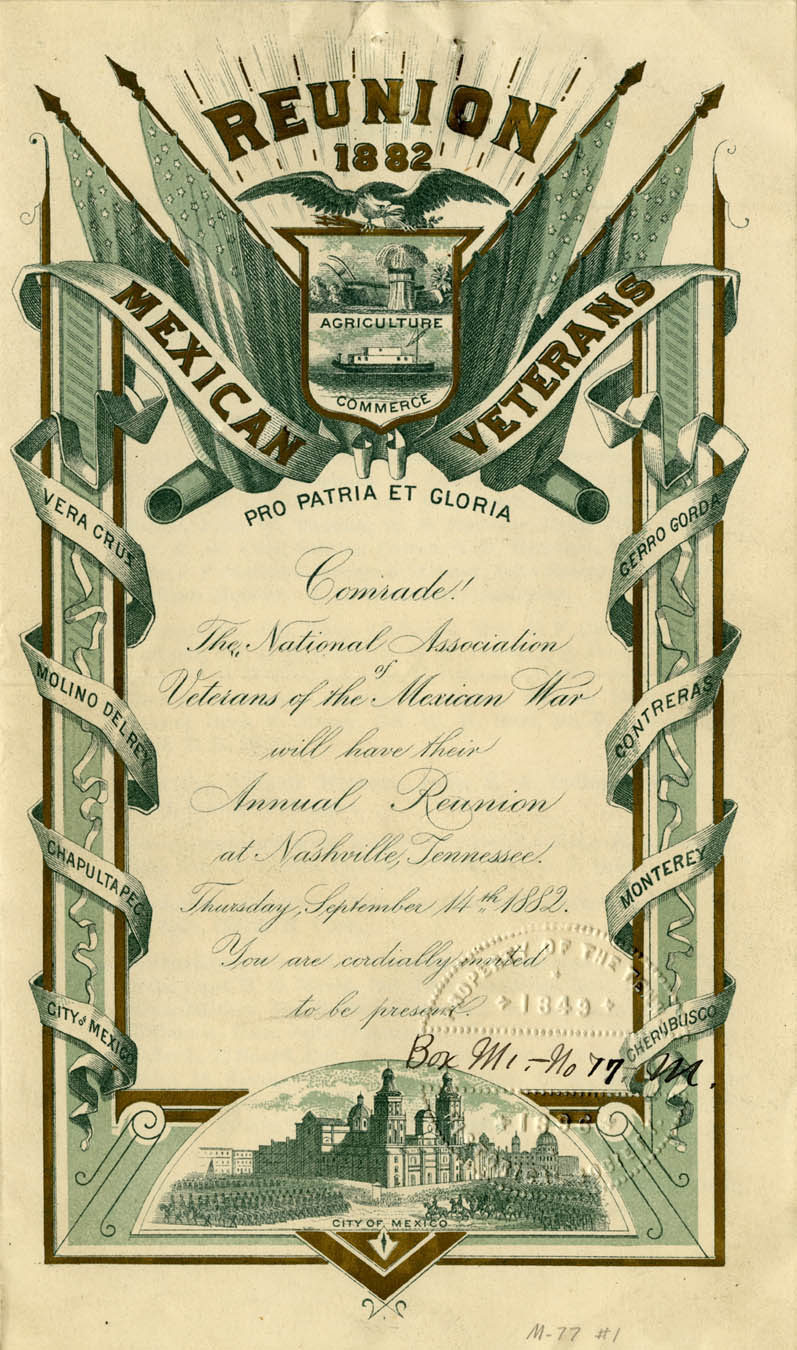 REUNION
1882
MEXICAN VETERANS
AGRICULTURE
COMMERCE
PRO PATRIA ET GLORIA
VERA CRUS
MOLINO DEL REY
CHAPULTAPEC
CITY of MEXICO
CERRO GORDA
CONTRERAS
MONTEREY
CHERUBUSCO
Comrade!
The National Association
of
Veterans of the Mexican War
will have their
Annual Reunion
at Nashville, Tennessee.
Thursday, September 14th 1882.
You are cordially invited
to be present.
PROPERTY OF THE TENN
1849
Box M1.-No 77. M.
CITY OF MEXICO
M-77 #1